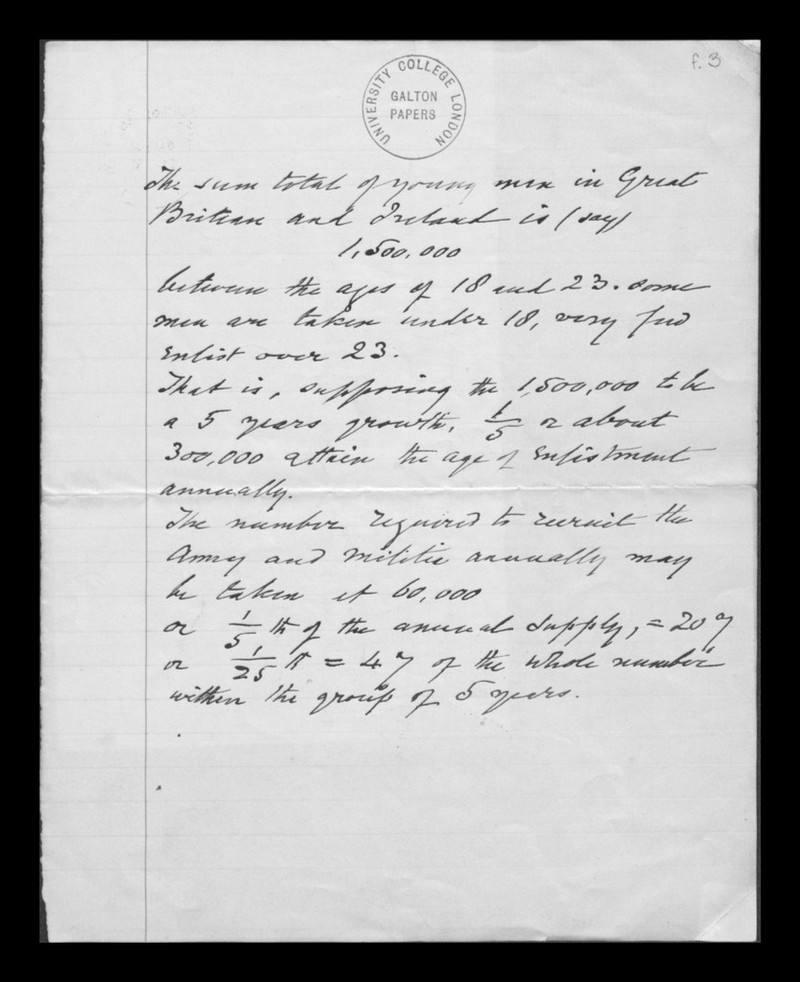 f. 3
UNIVERSITY COLLEGE LONDON
GALTON
PAPERS
The sum total of young men in Great
Britian and Ireland is (say)
1,500,000
between the ages of 18 and 23. some
men are taken under 18, very few
enlist over 23.
That is, supposing the 1,500,000 to be
a 5 years growth, 1/5 or about
300,000 attain the age of Enlistment
annually.
The number required to recruit the
Army and Militia annually may
be taken at 60,000
or 1/5 th of the annual supply, = 20 %
or 1/25 th = 4 % of the whole number
within the group of 5 years.